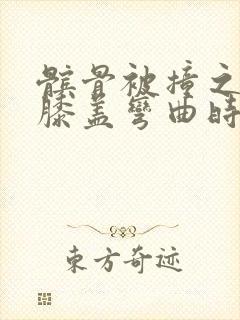 髌骨被撞之
膝盖弯曲时
東方奇迹